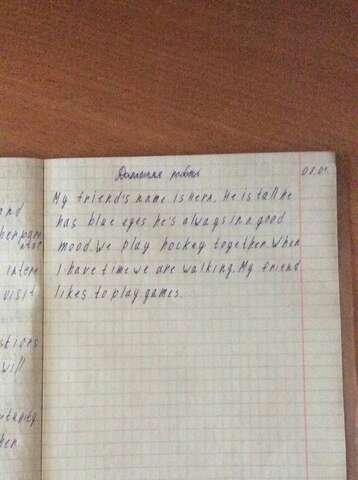 Домашняя работа
08.01.
My friend's name is Hern. He is tall he
has blue eyes he's always in a good
mood. We play hockey together. When
I have time we are walking. My friend
likes to play games.
and
intere
visit
will